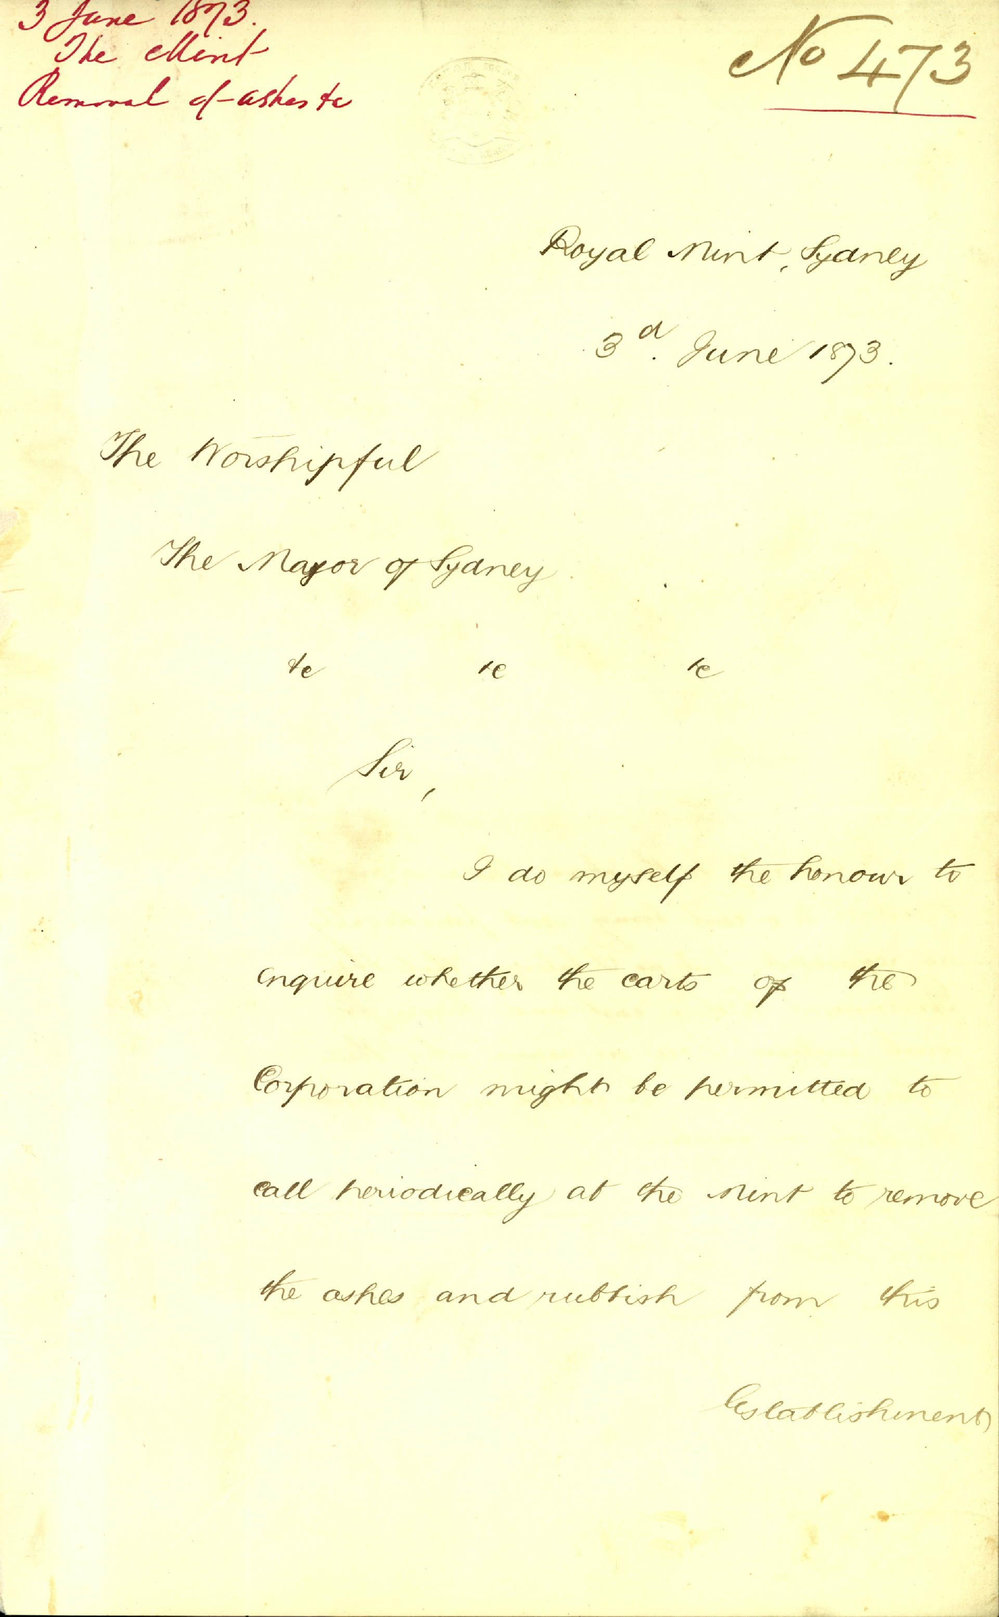 3 June 1873.
The Mint
Removal of ashes &c
No 473
Royal Mint, Sydney
3d. June 1873.
The Worshipful
The Mayor of Sydney
&c &c &c
Sir,
I do myself the honour to
enquire whether the carts of the
Corporation might be permitted to
call periodically at the Mint to remove
the ashes and rubbish from this
Establishment